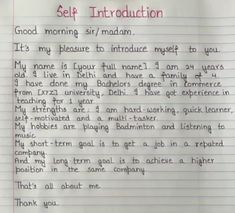 Self Introduction
Good morning sir/madam.
It's my pleasure to introduce myself to you.
My name is [your full name]. I am 24 years
old. I live in Delhi and have a family of 4.
I have done my Bachelors degree in commerce
from [xyz] university, Delhi. I have got experience in
teaching for 1 year.
My strengths are: I am hard-working, quick learner,
self-motivated and a multi-tasker.
My hobbies are playing Badminton and listening to
music
My short-term goal is to get a job in a reputed
company.
And my long-term goal is to achieve a higher
position in the same company.
That's all about me.
Thank you.